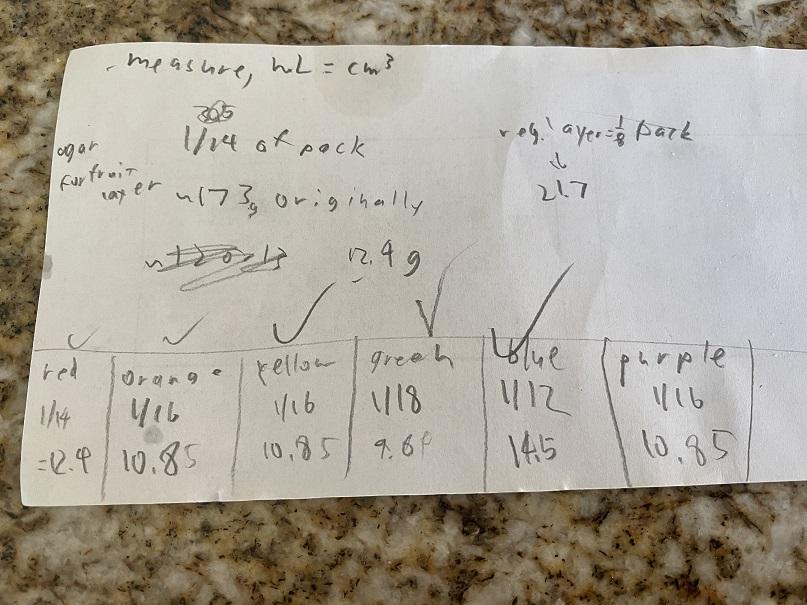 - measure, mL = cm³
1/14 of pack
agar
for fruit
layer
~173g originally
12.4g
reg. layer = 1/8 pack
↓
21.7
✓ ✓ ✓ ✓ ✓
red orange yellow green blue purple
1/14 1/16 1/16 1/18 1/12 1/16
=12.4 10.85 10.85 9.64 14.5 10.85